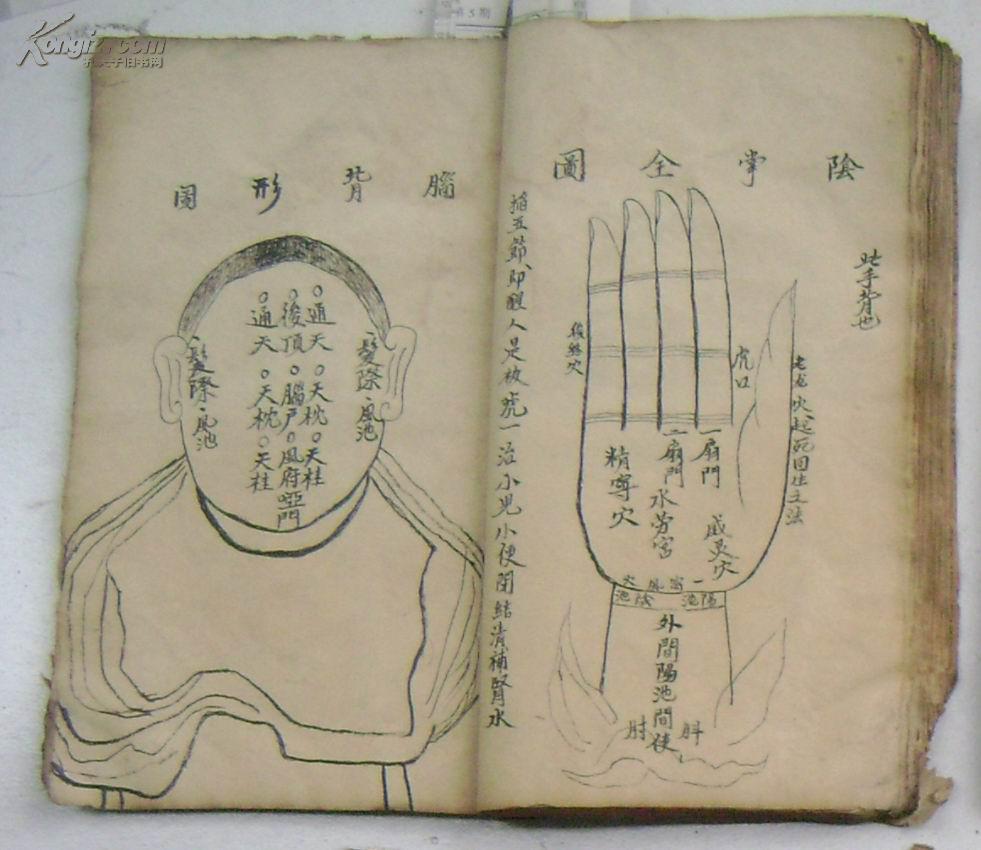 陰掌全圖
此手背也
老龙穴起死回生之法
虎口
一扇門
二扇門
威灵穴
水劳宮
精寧穴
後谿穴
一窩風穴
陽池
陰池
外間陽池間使
肘
掐五節即醒人是被
一治小兒小便閉結清補腎水
腦背形圖
髮際
風池
通天
天枕
天柱
後頂
腦戶
風府
啞門
通天
天枕
天柱
髮際
風池
Kongfz.com
孔夫子旧书网
第5期